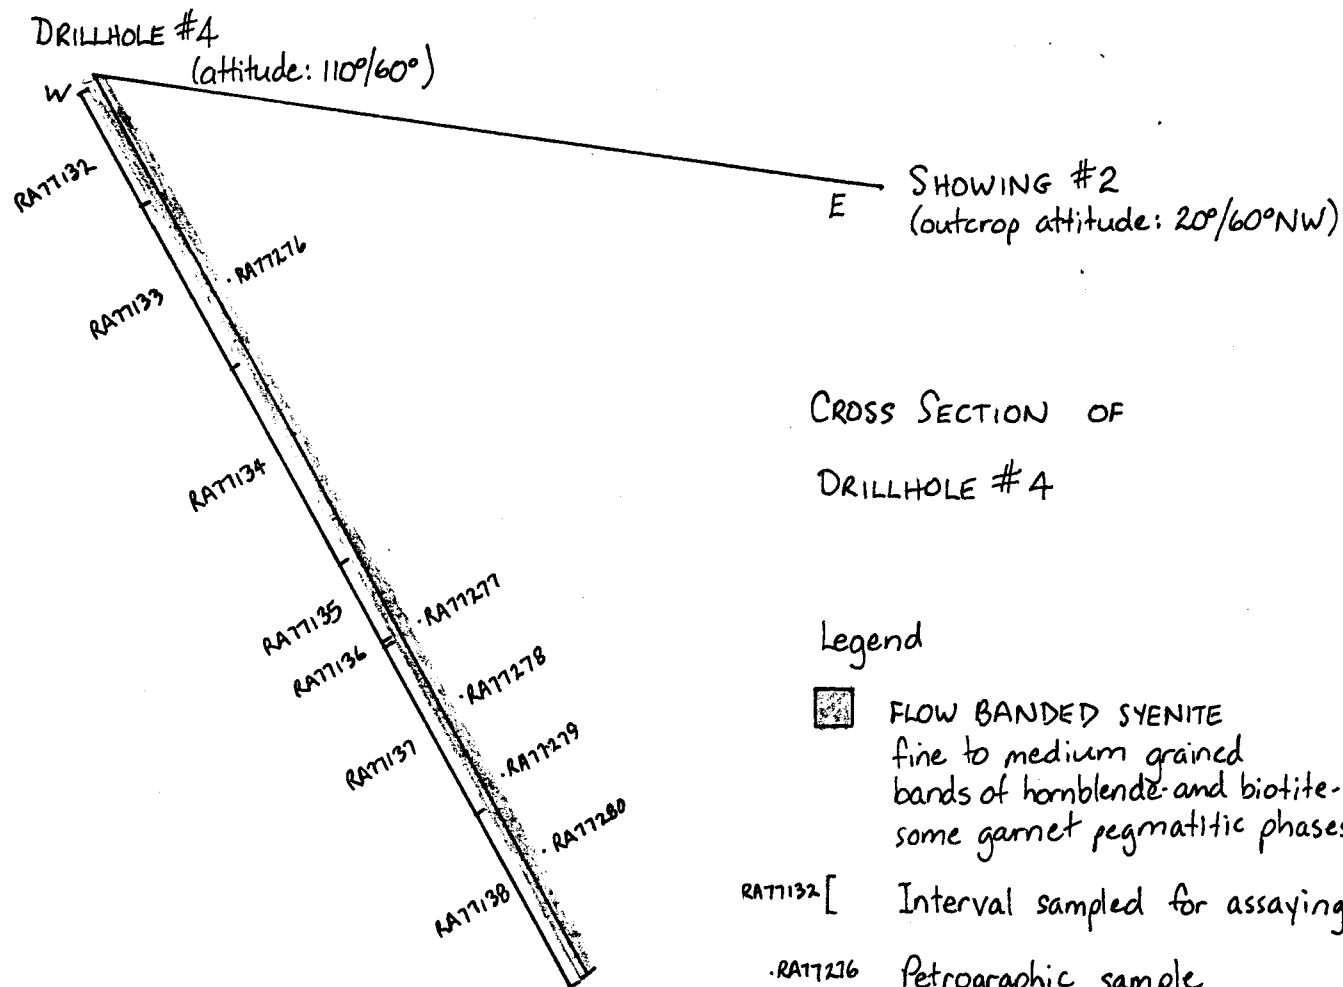 DRILLHOLE #4
(attitude: 110°/60°)
W
E
SHOWING #2
(outcrop attitude: 20°/60°NW)
RA77132
RA77276
RA77133
CROSS SECTION OF
DRILLHOLE #4
RA77134
RA77277
RA77135
RA77136
RA77278
RA77137
RA77279
RA77280
RA77138
Legend
FLOW BANDED SYENITE
fine to medium grained
bands of hornblende- and biotite-
some garnet pegmatitic phases
RA77132 [ Interval sampled for assaying
.RA77276 Petrographic sample